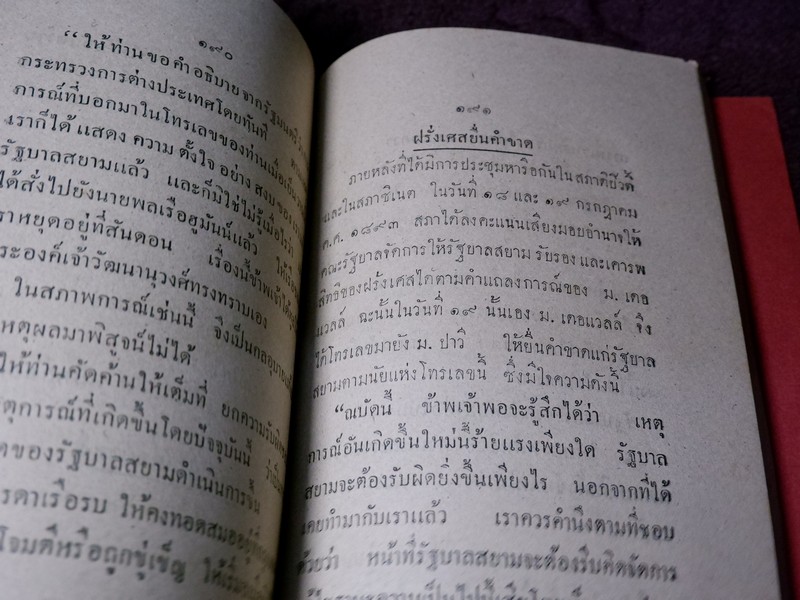 ๑๙๐
“ ให้ท่าน ขอ คำ อธิบาย จาก รัฐมนตรี
กระทรวงการต่างประเทศโดยทันที
การณ์ที่บอกมาในโทรเลขของท่านเมื่อ
เราก็ได้ แสดง ความ ตั้งใจ อย่าง สงบ ของ
รัฐบาลสยามแล้ว และก็มิใช่ไม่รู้เมื่อไรว่า
ได้สั่งไปยังนายพลเรือฮูมันน์แล้ว ให้
ราหยุดอยู่ที่สันดอน เรื่องนี้ข้าพเจ้าได้
ประองค์เจ้าวัฒนานุวงศ์ทรงทราบเอง
ในสภาพการณ์เช่นนี้ จึงเป็นกลอุบาย
หตุผลมาพิสูจน์ไม่ได้
ให้ท่านคัดค้านให้เต็มที่ ยกความรับผิด
ตุการณ์ที่เกิดขึ้นโดยปัจจุบันนี้
ของรัฐบาลสยามดำเนินการขึ้น
รดาเรือรบ ให้คงทอดสมออยู่
โจมตีหรือถูกขู่เข็ญ ให้
๑๙๑
ฝรั่งเศสยื่นคำขาด
ภายหลังที่ได้มีการประชุมหารือกันใน สภาดีปิวตี้
และในสภาซีเนต ในวันที่ ๑๘ และ ๑๙ กรกฎาคม
ค.ศ. ๑๘๙๓ สภาได้ลงคะแนนเสียงมอบอำนาจให้
คณะรัฐบาลจัดการให้รัฐบาลสยาม รับรอง และเคารพ
สิทธิของฝรั่งเศสได้ตามคำแถลงการณ์ของ ม. เดอ
แวลล์ ฉะนั้นในวันที่ ๑๙ นั้นเอง ม. เดอแวลล์ จึง
ได้โทรเลขมายัง ม. ปาวี ให้ยื่นคำขาดแก่รัฐบาล
สยามตามนัยแห่งโทรเลขนี้ ซึ่งมีใจความดังนี้
“ณบัดนี้ ข้าพเจ้าพอจะรู้สึกได้ว่า เหตุ
การณ์อันเกิดขึ้นใหม่นี้ร้ายแรงเพียงใด รัฐบาล
สยามจะต้องรับผิดยิ่งขึ้นเพียงไร นอกจากที่ได้
เคยทำมากับเราแล้ว เราควรคำนึงตามที่ชอบ
ด้วยว่า หน้าที่รัฐบาลสยามจะต้องรีบคิดจัดการ